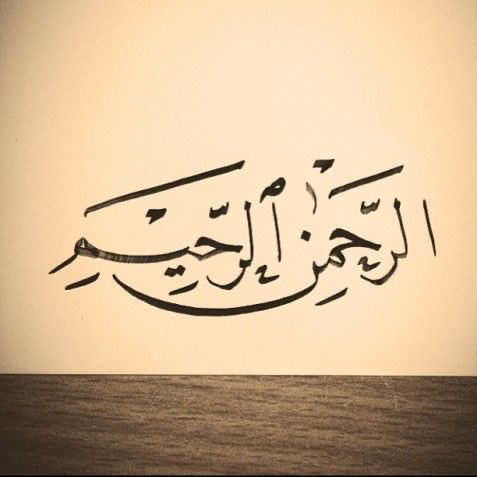 الرَّحْمَٰنِ ٱلرَّحِيمِ